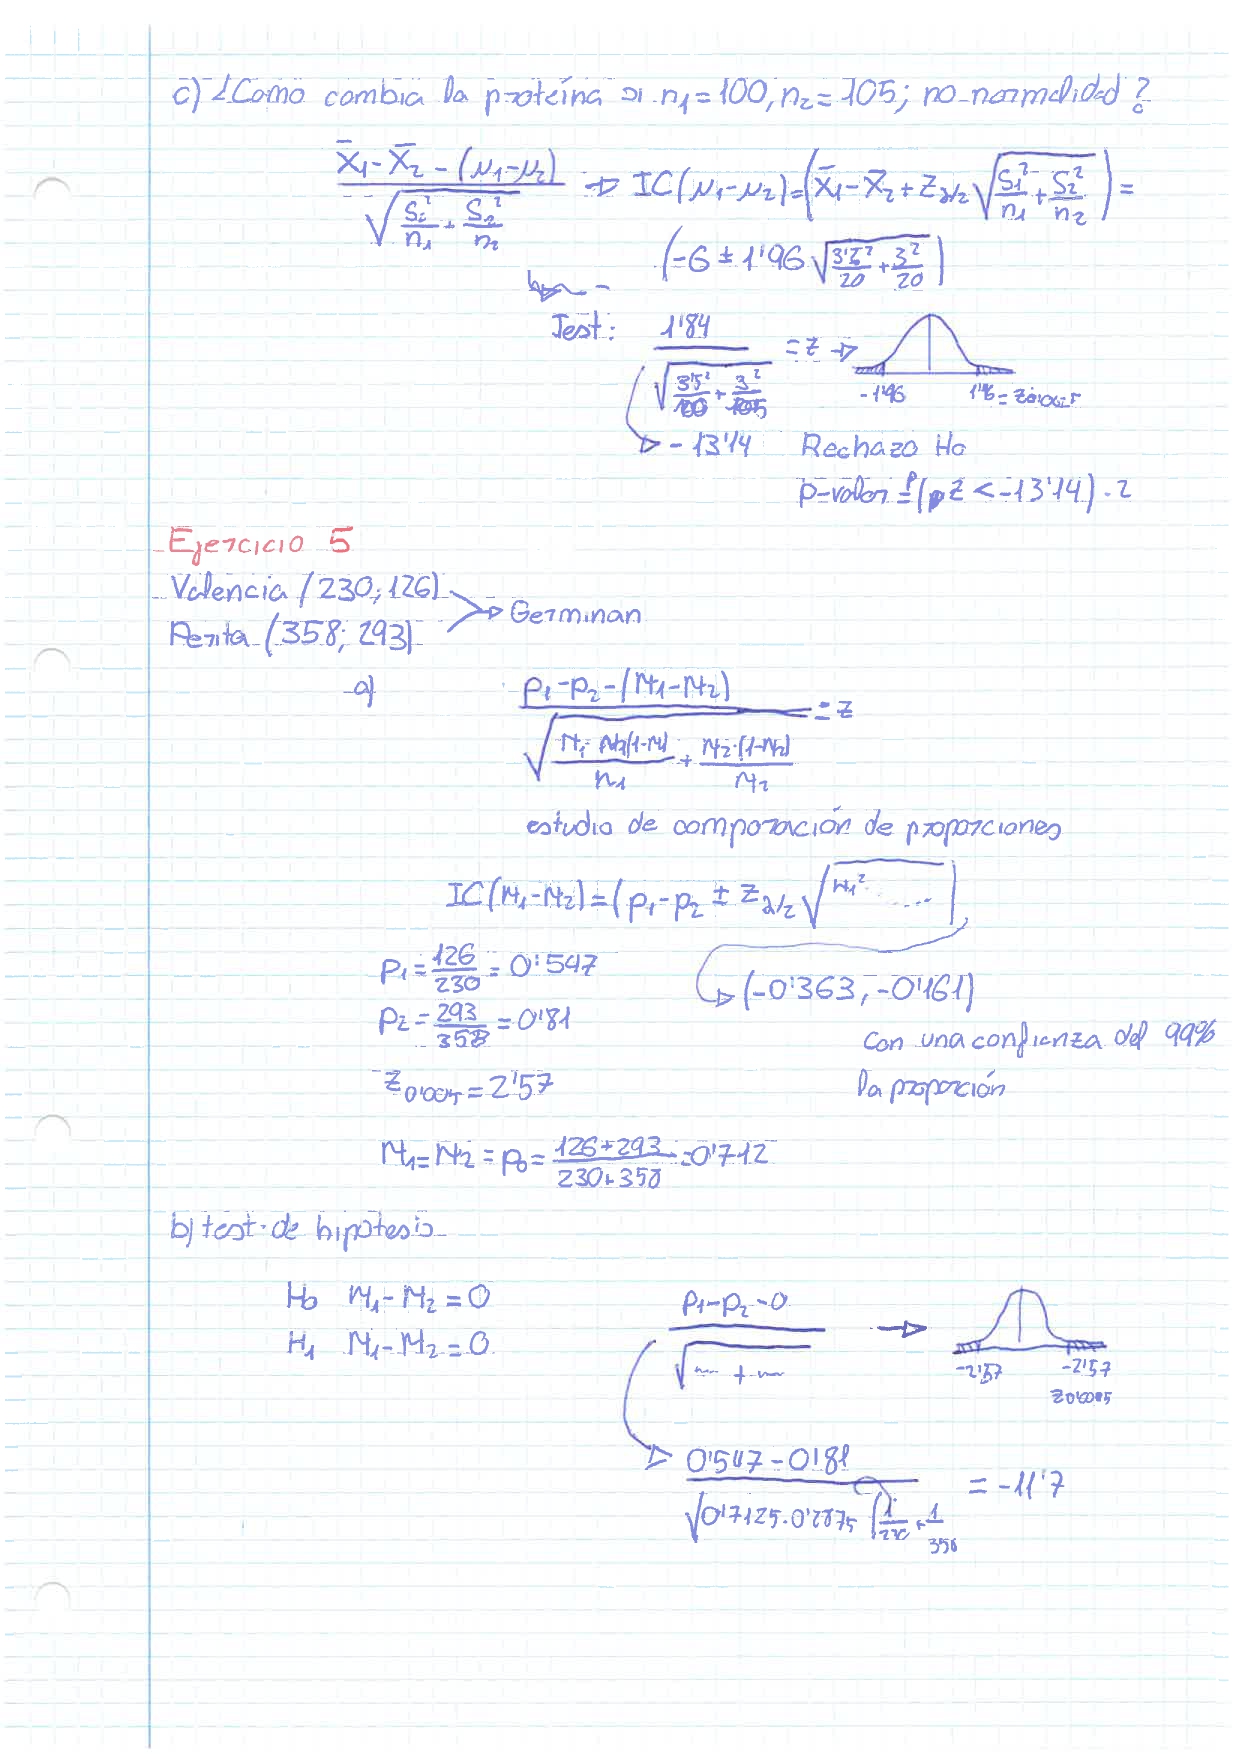 c) ¿Como cambia la proteína si n₁=100, n₂=105; no normalidad?
(x̄₁-x̄₂-(μ₁-μ₂))/√(S₁²/n₁+S₂²/n₂) → IC(μ₁-μ₂)=(x̄₁-x̄₂+z_α/2 √(S₁²/n₁+S₂²/n₂))=
(-6±1'96 √(3'5²/20+3²/20))
Test: 1'84/√(3'5²/100+3²/105) =z →
-1'96 1'96=z0'025
→ -13'14 Rechazo Ho
p-valor = P(z<-13'14)·2
Ejercicio 5
Valencia (230; 126)
Perita (358; 293)
→ Germinan
a) (p₁-p₂-(π₁-π₂))/√(π₁(1-π₁)/n₁+π₂·(1-π₂)/π₂) =z
estudio de comparación de proporciones
IC(π₁-π₂)=(p₁-p₂ ± z_α/2 √(π₁² .....))
p₁=126/230=0'547
→ (-0'363, -0'161)
p₂=293/358=0'81
con una confianza del 99%
z0'005=2'57
la proporción
π₁=π₂=p₀=(126+293)/(230+358)=0'712
b) test de hipótesis
Ho π₁-π₂=0
H₁ π₁-π₂=0
(p₁-p₂-0)/√( + ) →
-2'57 -2'57
z0'005
→ (0'547-0'81)/√(0'7125·0'2875 (1/230+1/358) = -11'7